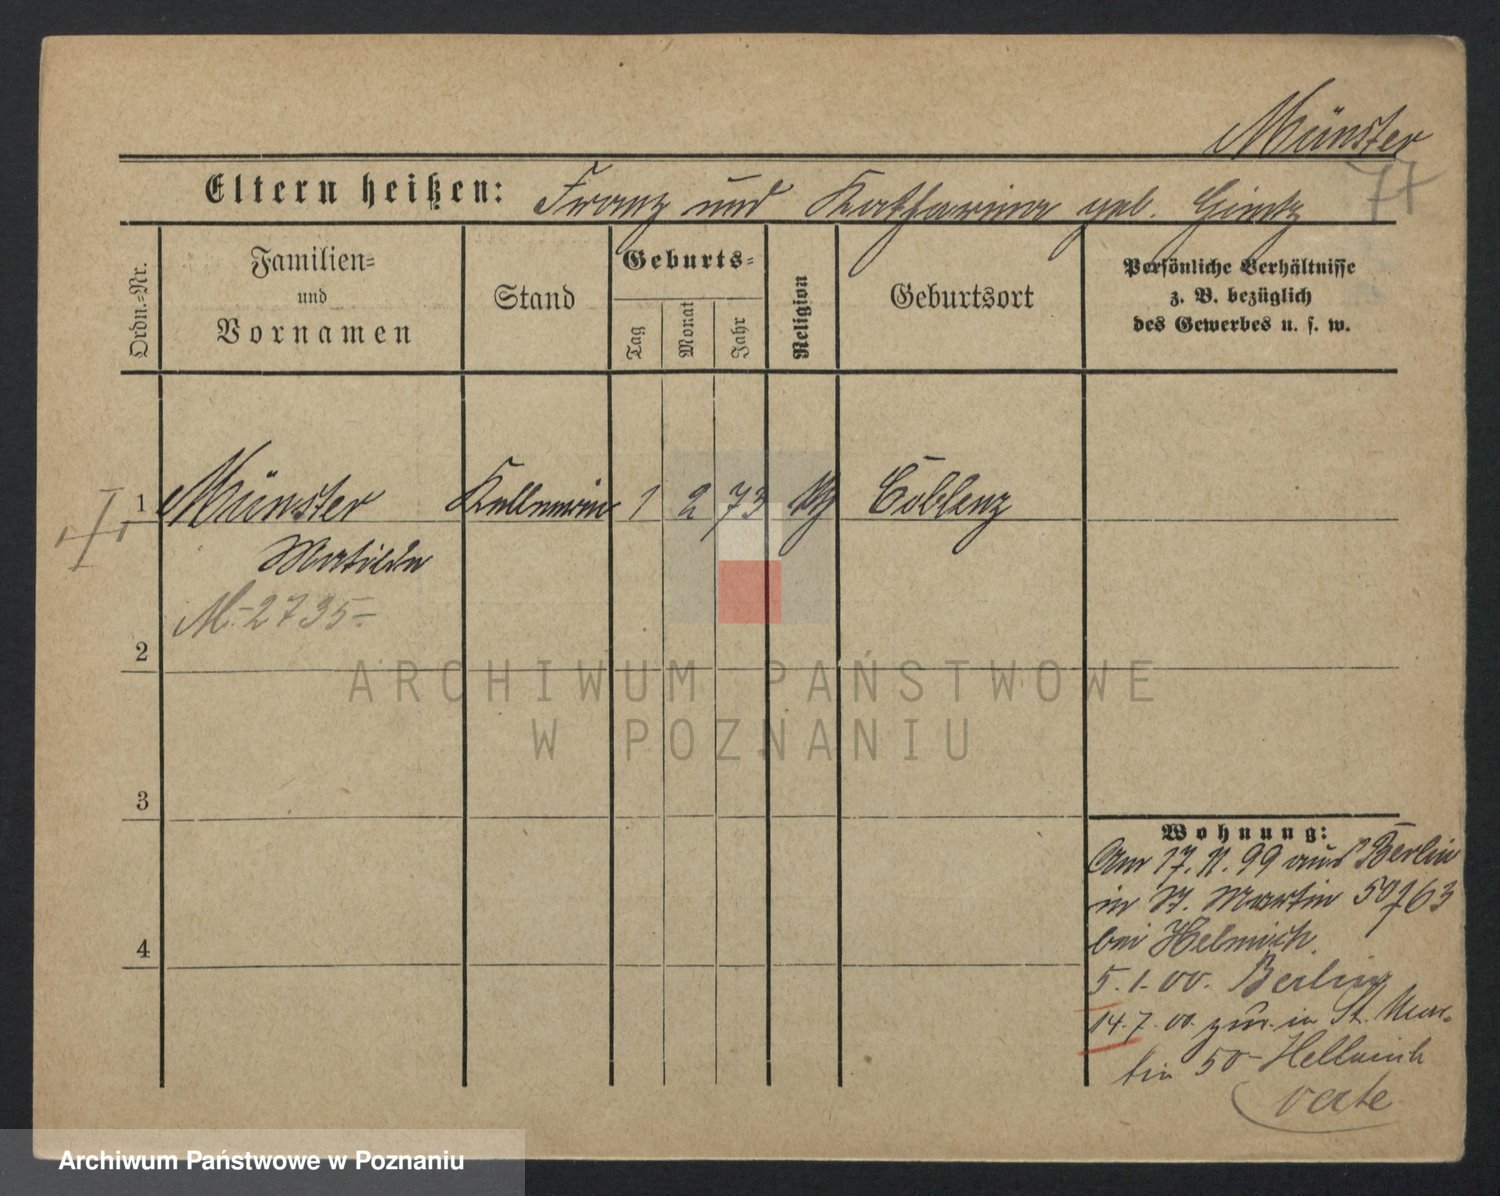 Münster
77
Eltern heißen: Franz und Katharina geb. Gintz
Ordn.-Nr.
Familien-
und
Vornamen
Stand
Geburts-
Tag
Monat
Jahr
Religion
Geburtsort
Persönliche Verhältnisse
z. B. bezüglich
des Gewerbes u. s. w.
1 Münster Kellnerin 1 2 73 Coblenz
Matilda
M.-2735-
2
3
4
Wohnung:
Am 17.11.99 aus Berlin
in St. Martin 50
bei Helmich.
5.1.00. Berlin
14.7.00. zur. in St. Mar-
tin 50- Hellmich
verte
ARCHIWUM PAŃSTWOWE
W POZNANIU
Archiwum Państwowe w Poznaniu